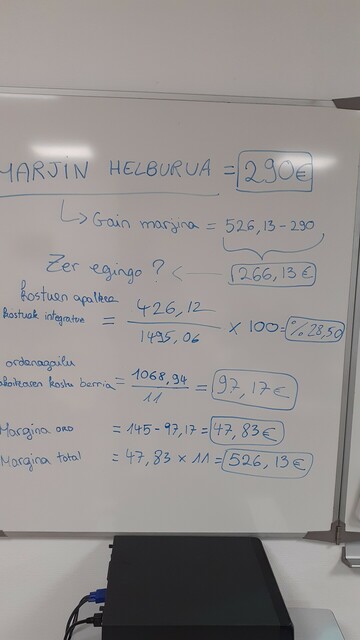 MARJIN HELBURUA = 290€
↳ Gain marjina = 526,13-290
Zer egingo? ← 1266,13€
kostuen apalkea
kostuak integratue = 426,12 / 1495,06 × 100 = %28,50
ordenagailu
kostu berria = 1068,94 / 11 = 97,17€
Margina = 145-97,17 = 47,83€
Margina total = 47,83 × 11 = 526,13€